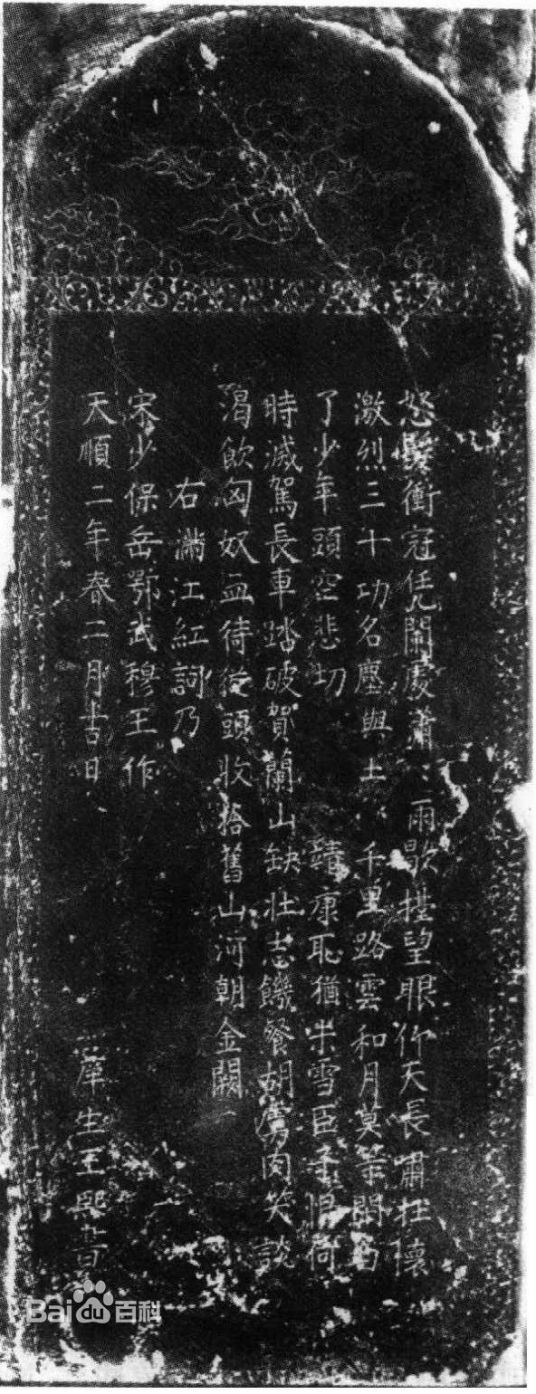 怒髮衝冠凭闌處瀟〻雨歇擡望眼仰天長嘯壯懷
激烈三十功名塵與土 千里路雲和月莫等閒白
了少年頭空悲切 靖康恥猶未雪臣子恨何
時滅駕長車踏破賀蘭山缺壯志饑餐胡虜肉笑談
渴飲匈奴血待從頭收拾舊山河朝金闕
右滿江紅詞乃
宋少保岳鄂武穆王作
天順二年春二月吉日
庠生王熙書
Baidu百科